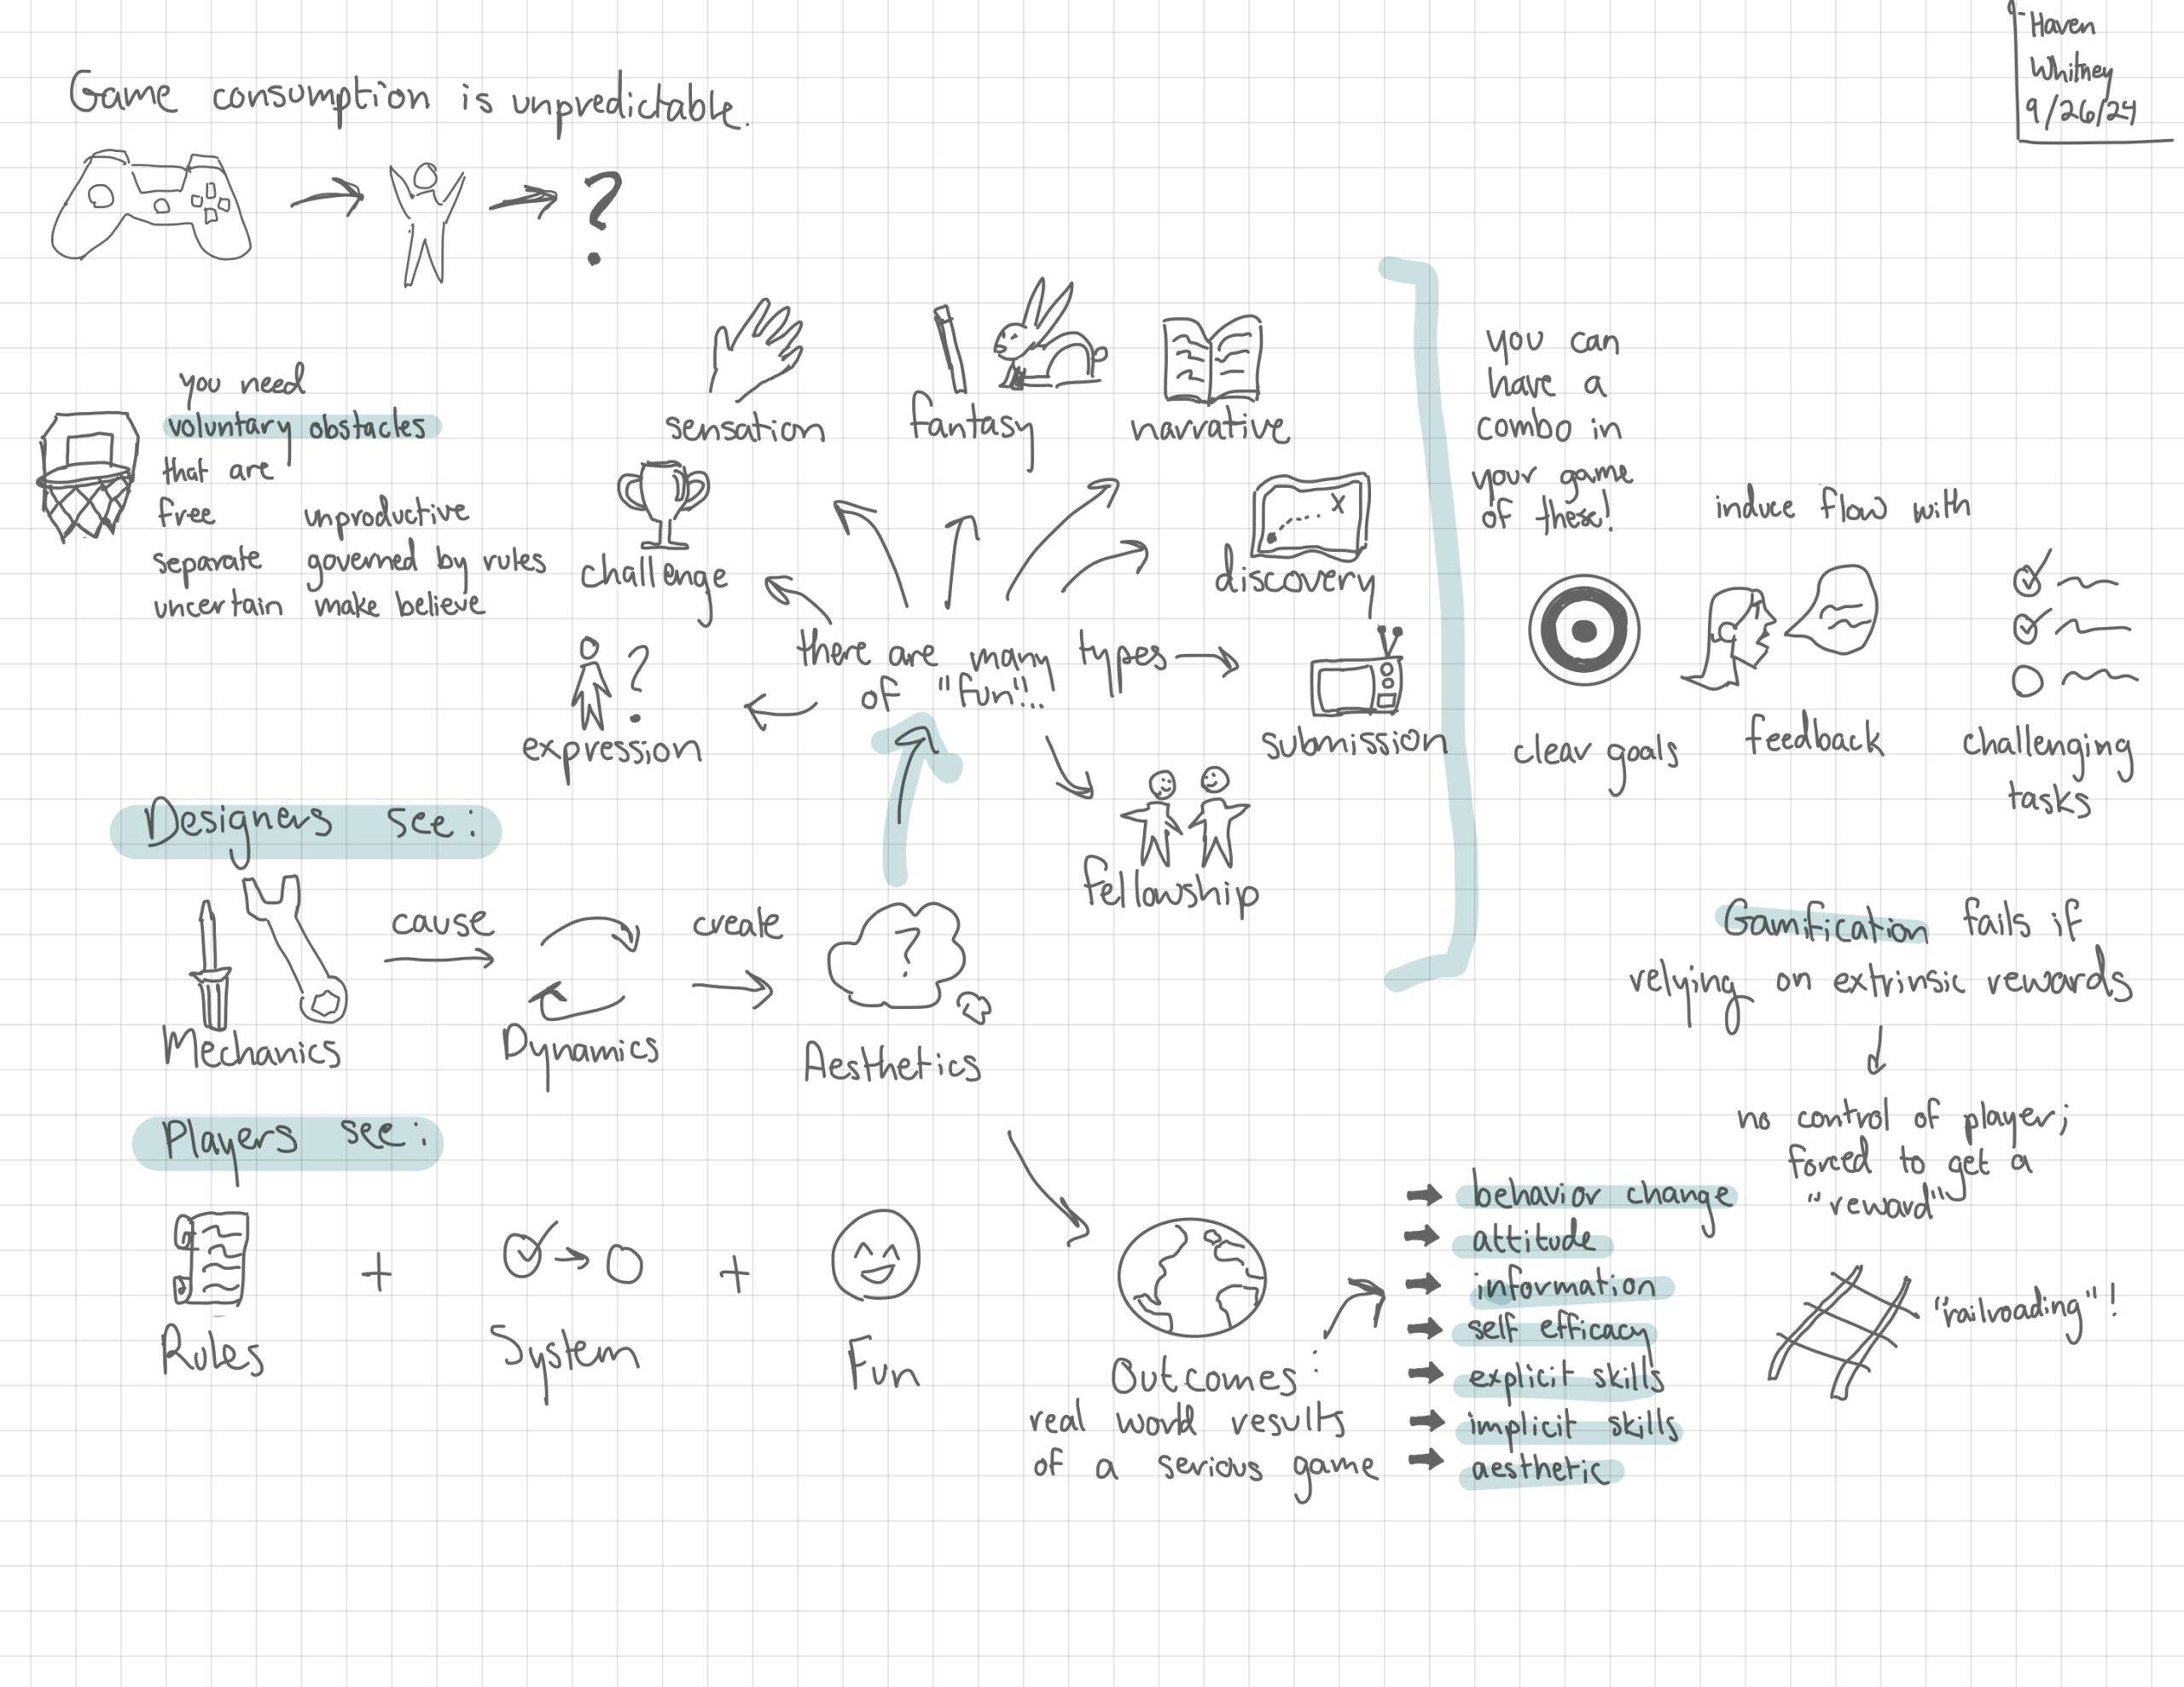 Haven
Whitney
9/26/24
Game consumption is unpredictable.
?
you need
voluntary obstacles
that are
free unproductive
separate governed by rules
uncertain make believe
sensation
fantasy
narrative
challenge
X
discovery
there are many types
of "fun"...
?
expression
submission
fellowship
you can
have a
combo in
your game
of these!
induce flow with
clear goals
feedback
challenging
tasks
Designers see:
cause
create
?
Mechanics
Dynamics
Aesthetics
Gamification fails if
relying on extrinsic rewards
no control of player;
forced to get a
"reward"
"railroading"!
Players see:
+
+
Rules
System
Fun
Outcomes:
real world results
of a serious game
behavior change
attitude
information
self efficacy
explicit skills
implicit skills
aesthetic